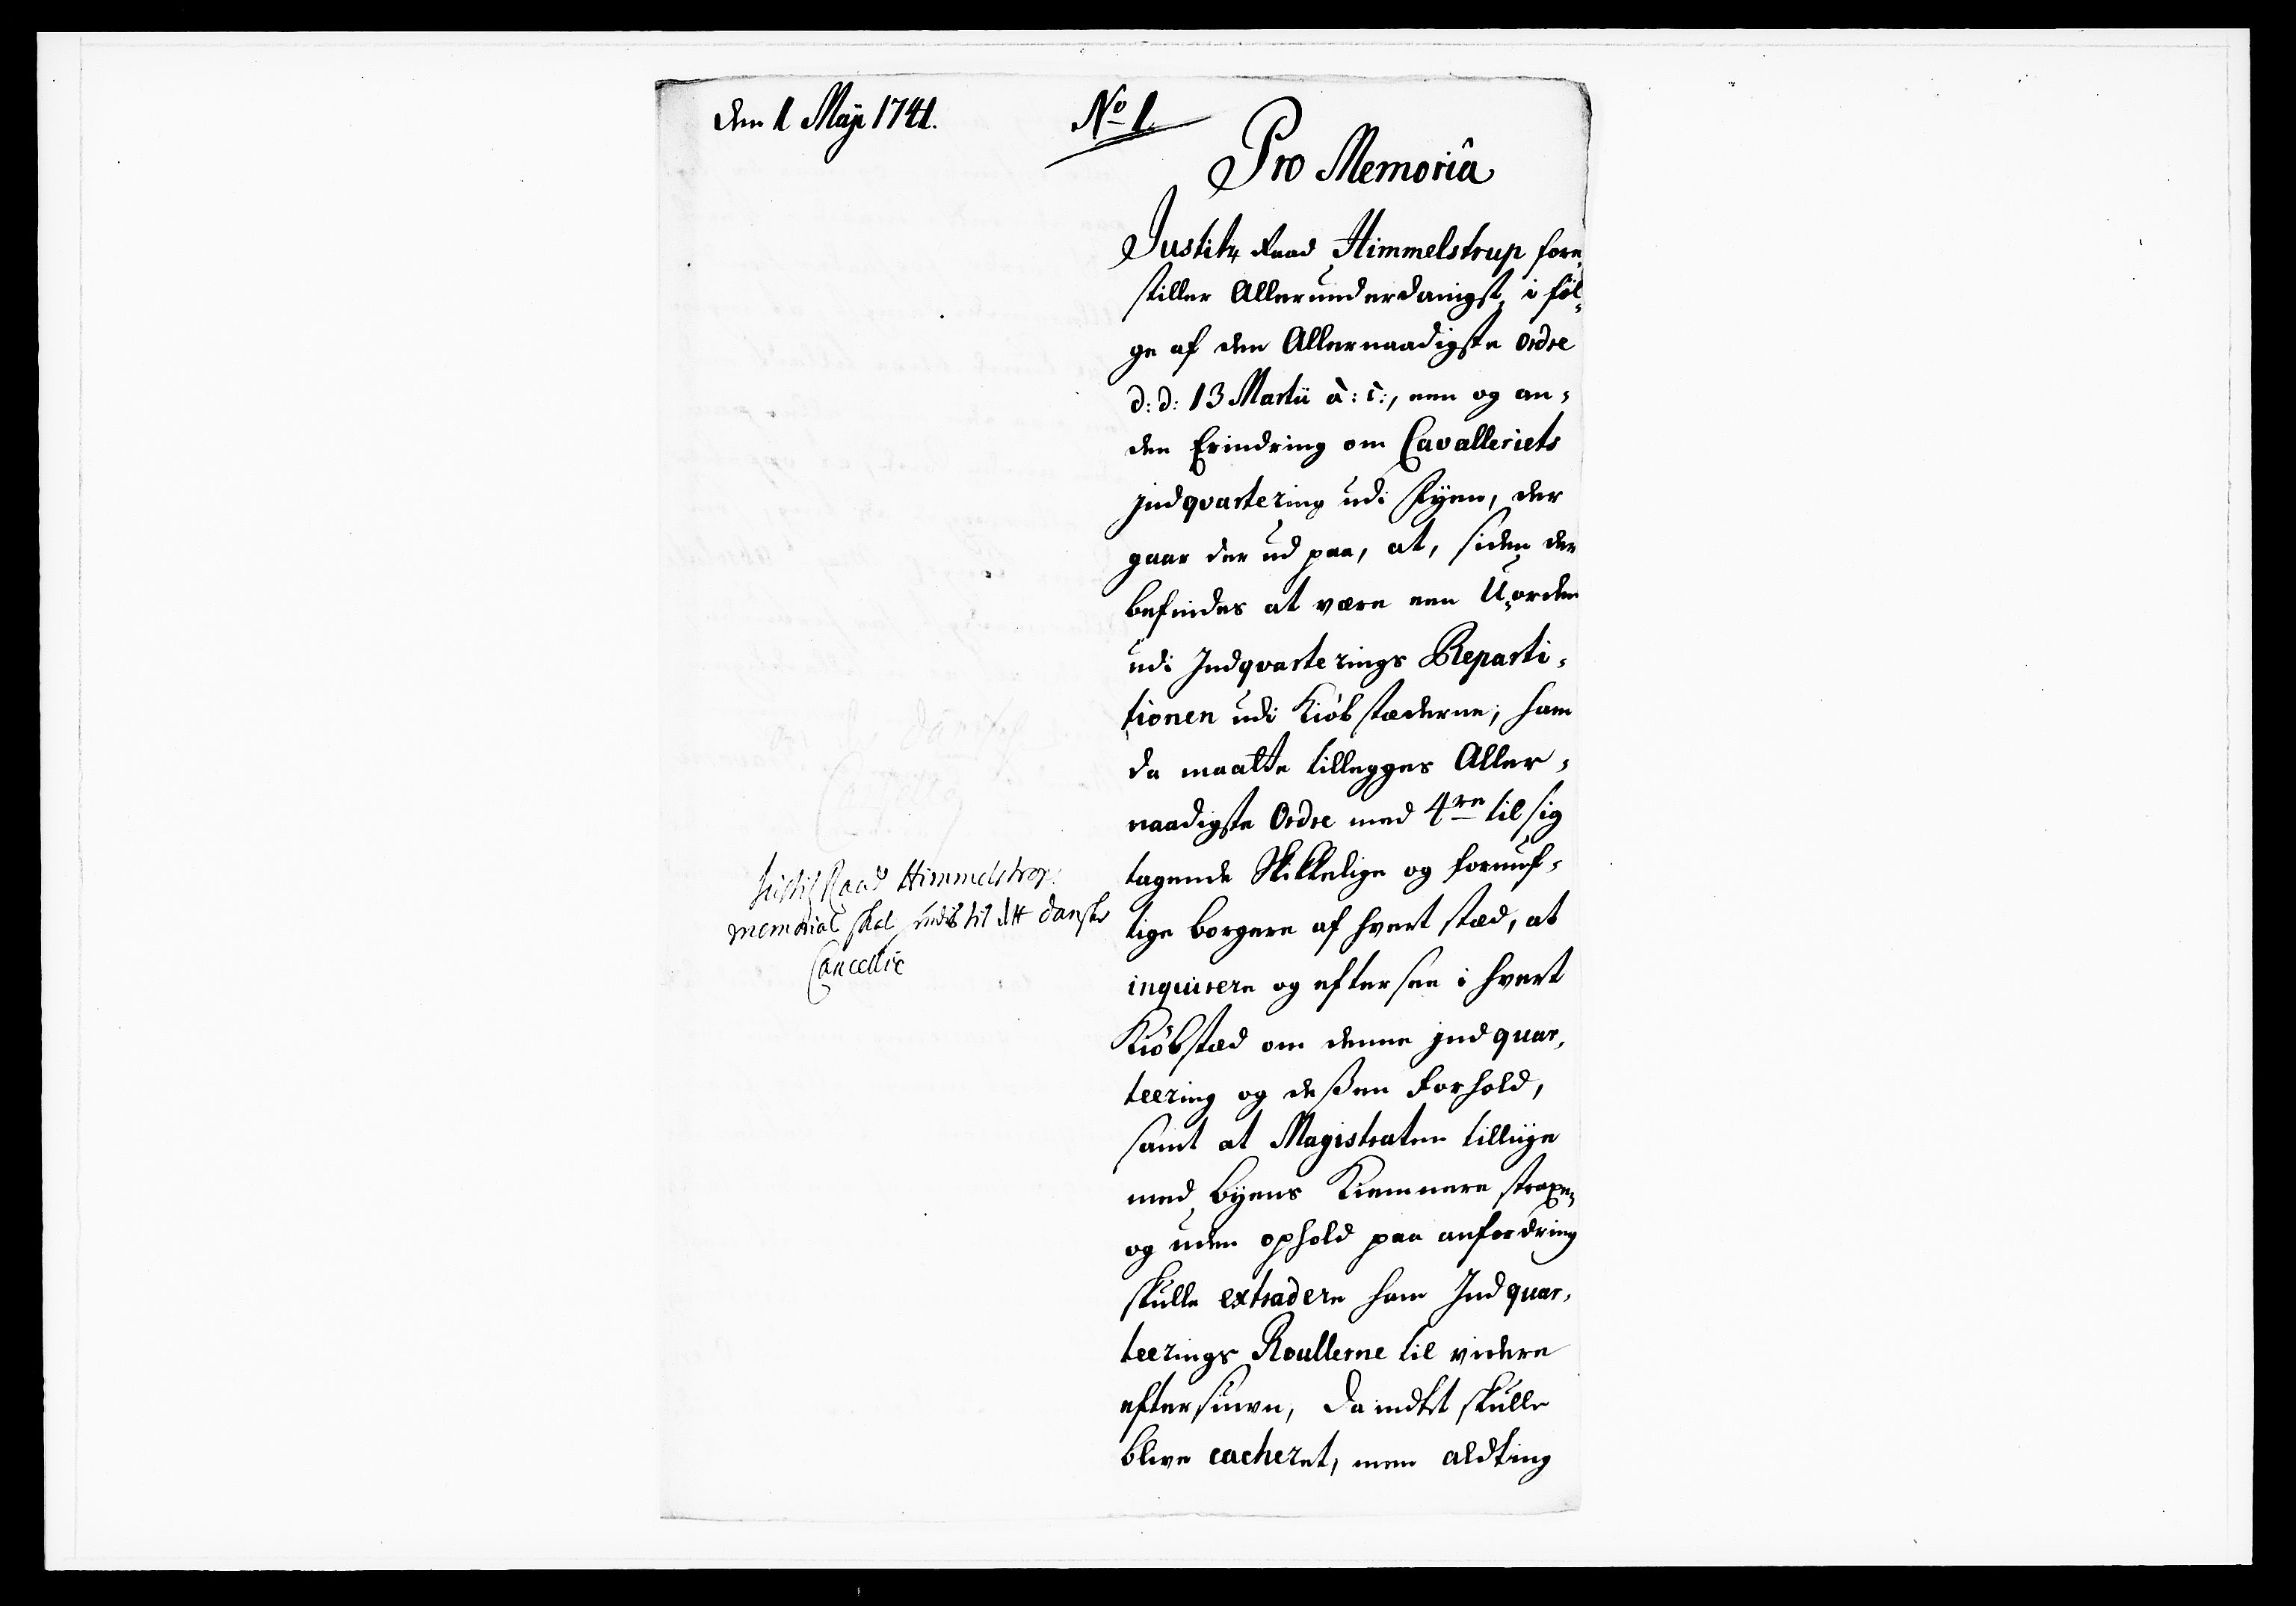 den 1 Maÿ 1741.
No 1.
Pro Memoriâ
Justitz Raad Himmelstrup fore¬
stiller Allerunderdanigst, i føl¬
ge af den Allernaadigste Ordre
d: d: 13 Martii à: c:, een og an¬
den Erindring om Cavalleriets
Indqvartering udi Fÿen, der
gaar der ud paa, at, siden der
befindes at være een U-orden
udi Indqvarterings Reparti¬
tionen udi Kiøbstæderne; ham
da maatte tillegges Aller¬
naadigste Ordre med 4re til sig
tagende Skikkelige og fornuf¬
tige borgere af hvert stæd, at
inquirere og eftersee i hvert
Kiøbstæd om denne Indquar¬
teering og deßen Forhold,
samt at Magistraten tillige
med bÿens Kiemnere straxe
og uden ophold paa anfordring
skulle extradere ham Indquar¬
teerings Roullerne til videre
eftersiuun, da indtet skulle
blive cacheret, men aldting
Justitz Raad Himmelstrop
memorial skal sendis til dtt danske
Cancellie